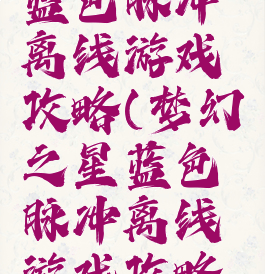 蓝色脉冲
离线游戏
攻略(梦幻
之星蓝色
脉冲离线
游戏攻略